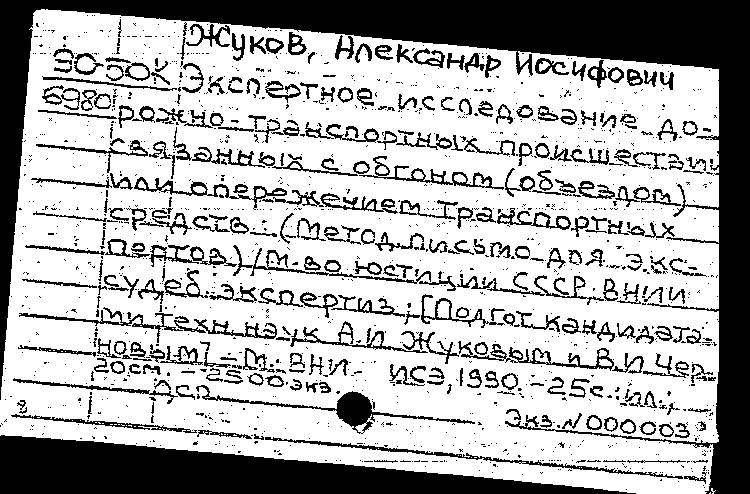 Жуков, Александр Иосифович
90-50К Экспертное исследование до-
6980 рожно-транспортных происшествий
связанных с обгоном (объездом)
или опережением транспортных
средств: (Метод. письмо для экс-
пертов) / М-во юстиции СССР, ВНИИ
судеб. экспертиз; [Подгот. кандидата-
ми техн. наук А.И. Жуковым и В.И. Чер-
новым] – М.: ВНИ- ИСЭ, 1990. – 25с.: ил.;
20см. – 2500экз.
ДСП. Экз. N 000003
8